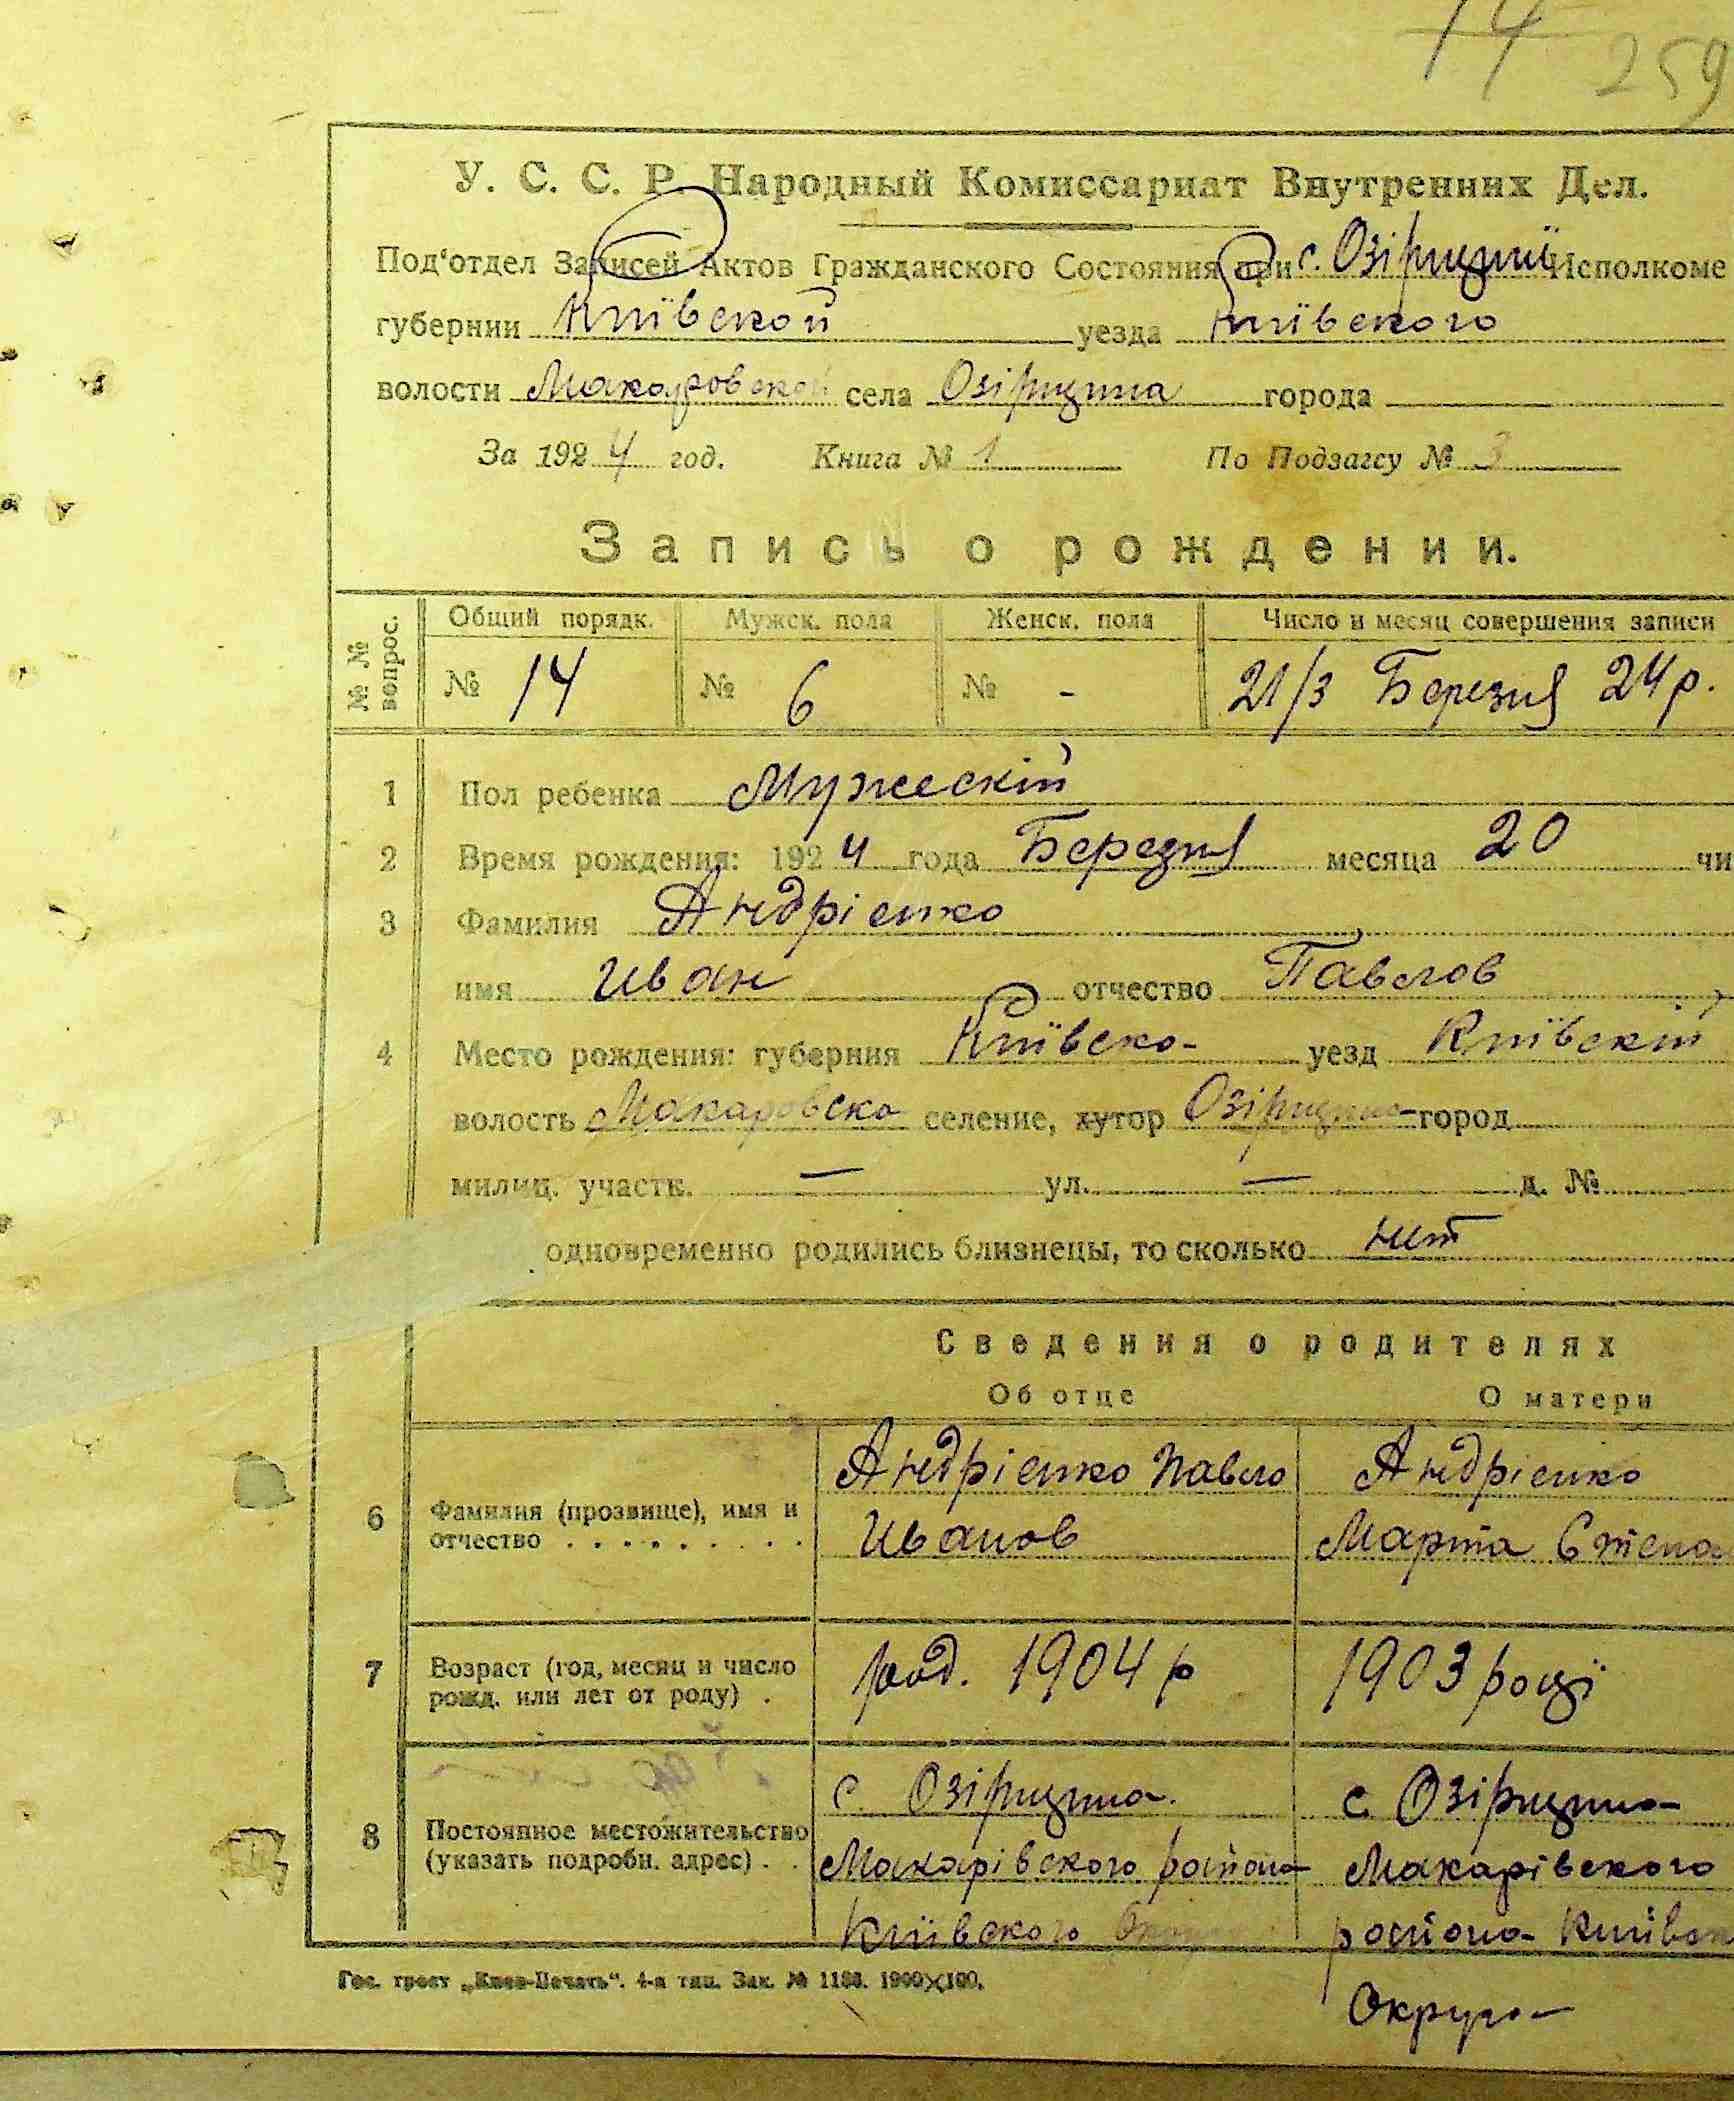 14 259
У. С. С. Р. Народный Комиссариат Внутренних Дел.
Под'отдел Записей Актов Гражданского Состояния при с. Озірщині Исполкоме
губернии Київской уезда Київского
волости Макаровской села Озірщина города
За 1924 год. Книга № 1 По Подзагсу № 3
Запись о рождении.
№ № вопрос. Общий порядк. Мужск. пола Женск. пола Число и месяц совершения записи
№ 14 № 6 № - 21/3 Березня 24 р.
1 Пол ребенка Мужескій
2 Время рождения: 1924 года Березня месяца 20 чи
3 Фамилия Андрієнко
имя Иван отчество Павлов
4 Место рождения: губерния Київска уезд Київскій
волость Макаровска селение, хутор Озірщина город
милиц. участк. — ул. — д. №
одновременно родились близнецы, то сколько нит
Сведения о родителях
Об отце О матери
6 Фамилия (прозвище), имя и отчество . . . . . . . . . Андрієнко Павло Иванов Андрієнко Марта Степа
7 Возраст (год, месяц и число рожд. или лет от роду) . род. 1904 р 1903 році
8 Постоянное местожительство (указать подробн. адрес) . . с. Озірщина Макарівского района Київского с Озірщина Макарівского района Київск Округа
Гос. трест „Киев-Печать“. 4-я тип. Зак. № 1186. 1900×100.